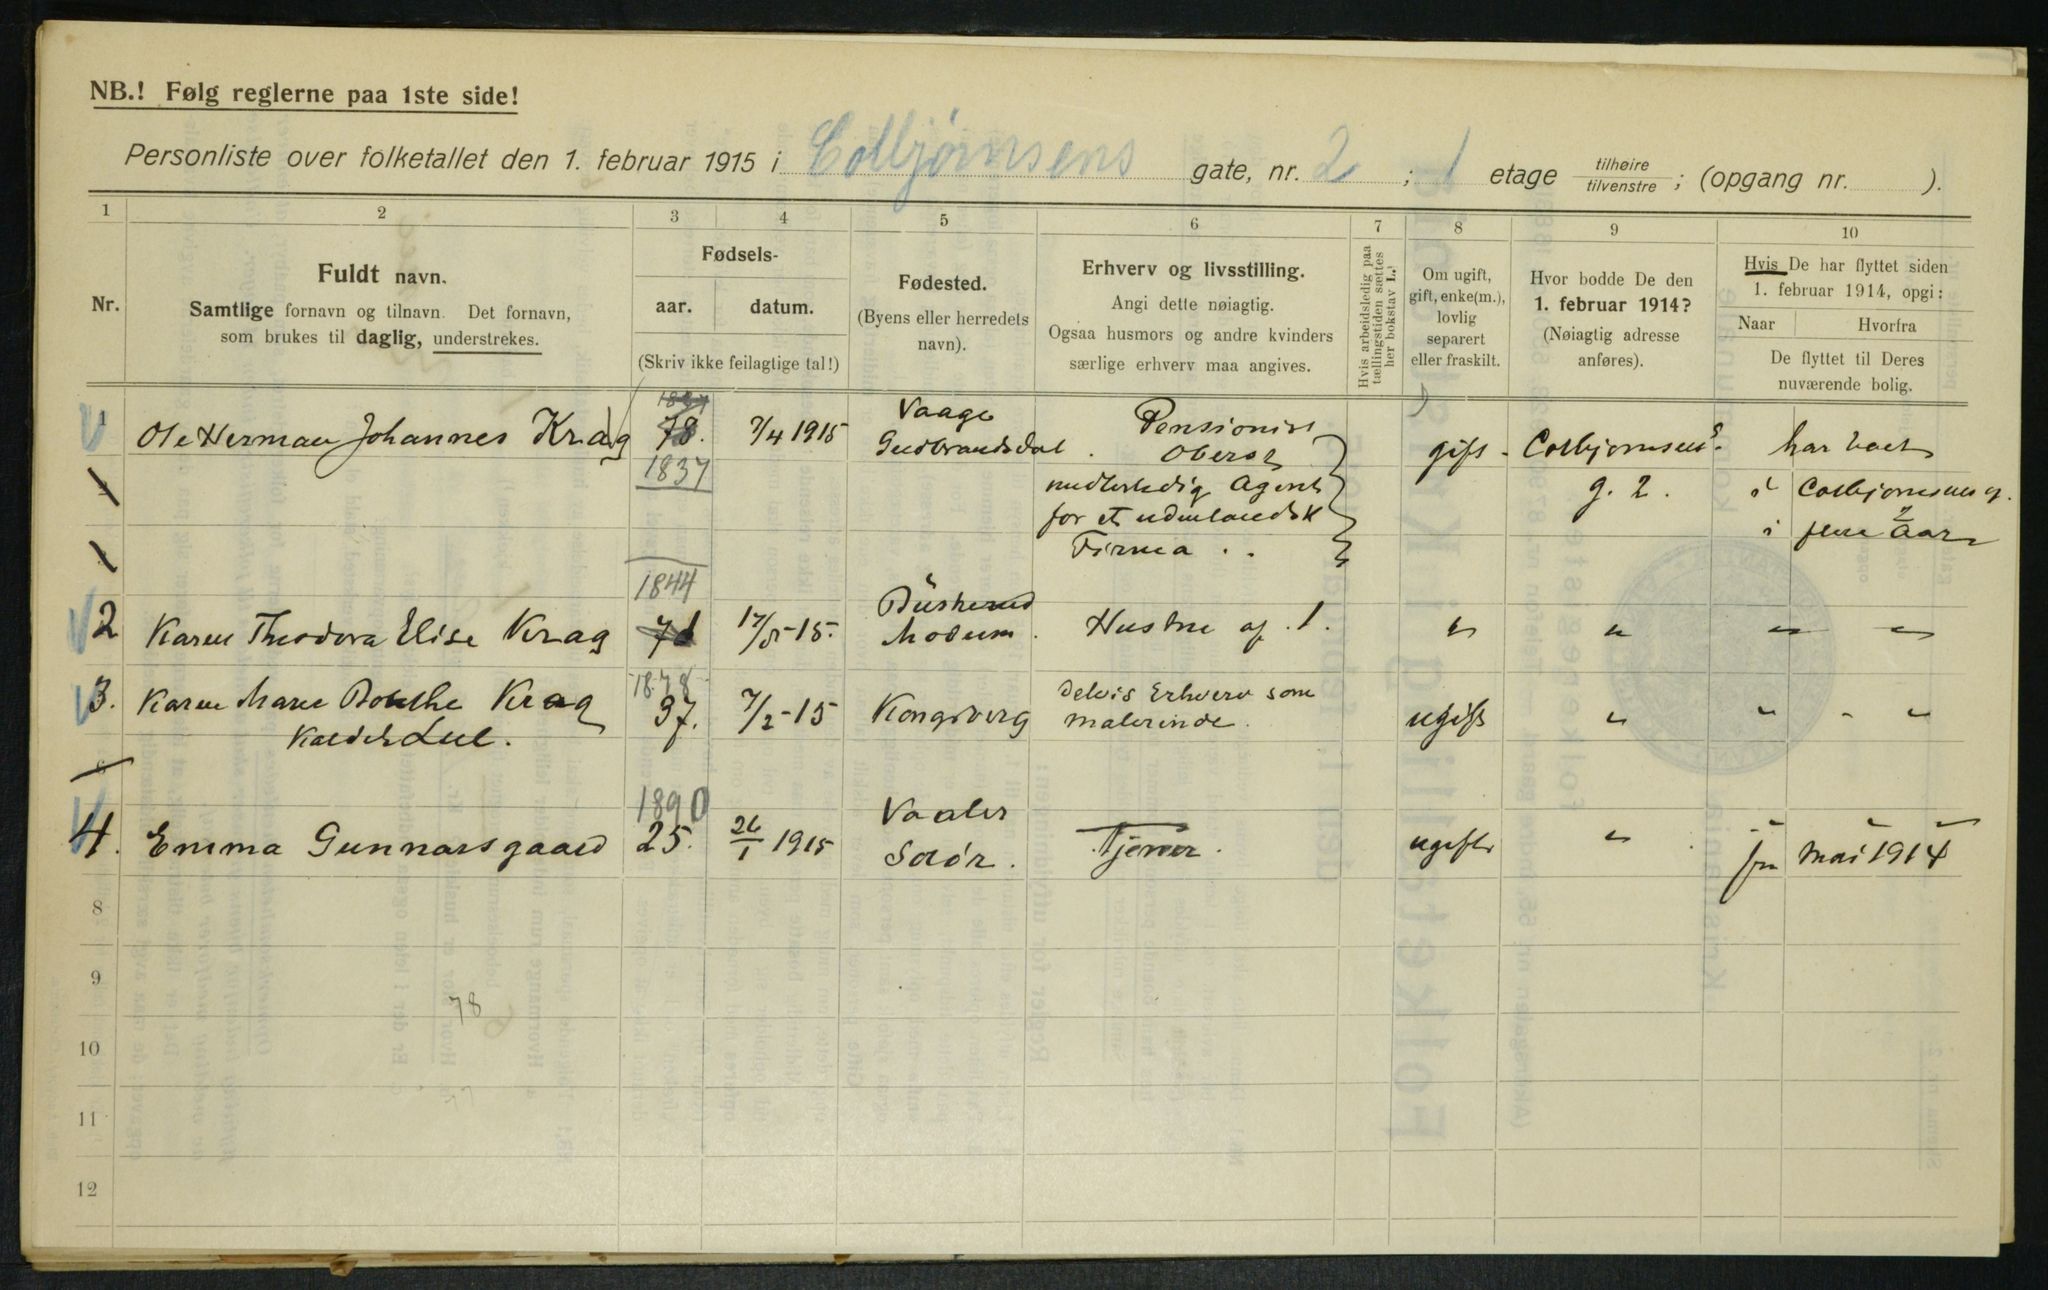 NB.! Følg reglerne paa 1ste side!
Personliste over folketallet den 1. februar 1915 i Colbjørnsens gate, nr. 2 ; 1 etage tilhøire tilvenstre ; (opgang nr. ).
1 2 3 4 5 6 7 8 9 10
Nr.
Fuldt navn.
Samtlige fornavn og tilnavn. Det fornavn,
som brukes til daglig, understrekes.
Fødsels-
aar. datum.
(Skriv ikke feilagtige tal!)
Fødested.
(Byens eller herredets
navn).
Erhverv og livsstilling.
Angi dette nøiagtig.
Ogsaa husmors og andre kvinders
særlige erhverv maa angives.
Hvis arbeidsledig paa
tællingstiden sættes
her bokstav L.
Om ugift,
gift, enke(m.),
lovlig
separert
eller fraskilt.
Hvor bodde De den
1. februar 1914?
(Nøiagtig adresse
anføres).
Hvis De har flyttet siden
1. februar 1914, opgi:
Naar Hvorfra
De flyttet til Deres
nuværende bolig.
1 Ole Herman Johannes Krag 78. 7/4 1915 Vaage Pensionist gift - Colbjørnsens har boet
1837 Gudbrandsdal . Oberst g. 2. i Colbjørnsens g. 2
Agent i flere Aar
for et udenlandsk
Firma . .
1844
2 Karen Theodora Elise Krag 71 17/5-15. Buskerud Modum . Hustru af 1. " " " "
1878
3. Karen Marie Dorthe Krag 37. 7/2-15 Kongsberg delvis Erhverv som ugift " " - "
Kaldet Lul. malerinde.
1890
4. Emma Gunnarsgaard 25. 26/1 1915 Vaaler Solør . Tjener . ugift " mai 1914
8
9
78
10
11
12